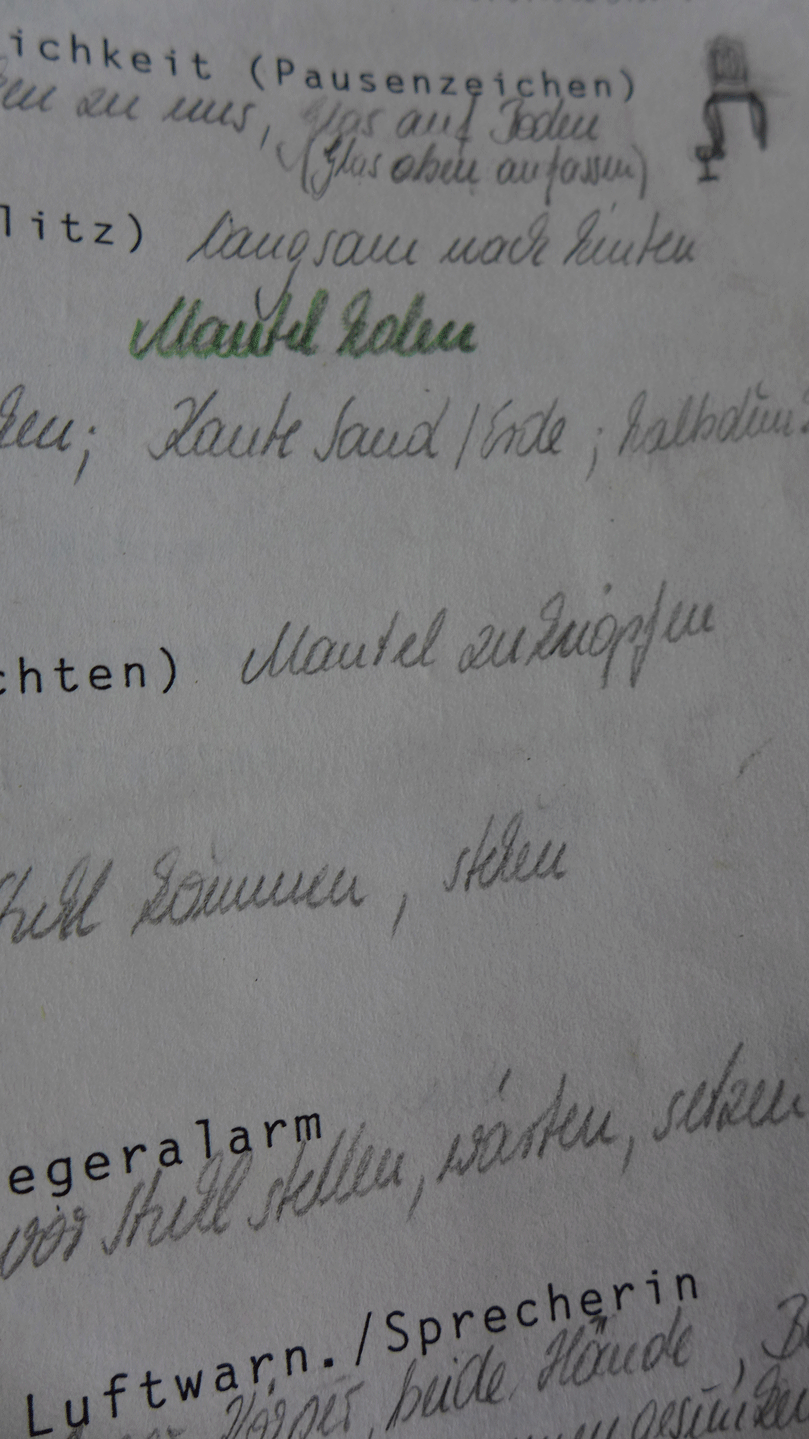 ichkeit (Pausenzeichen)
zu uns, Glas auf Boden
(Glas oben anfassen)
litz) langsam nach hinten
Mantel holen
Kante Sand / Erde ; halbdun
chten) Mantel zuknöpfen
Stuhl kommen, stehen
egeralarm
vor Stuhl stellen, warten, setzen
Luftwarn./Sprecherin
Körper, beide Hände,